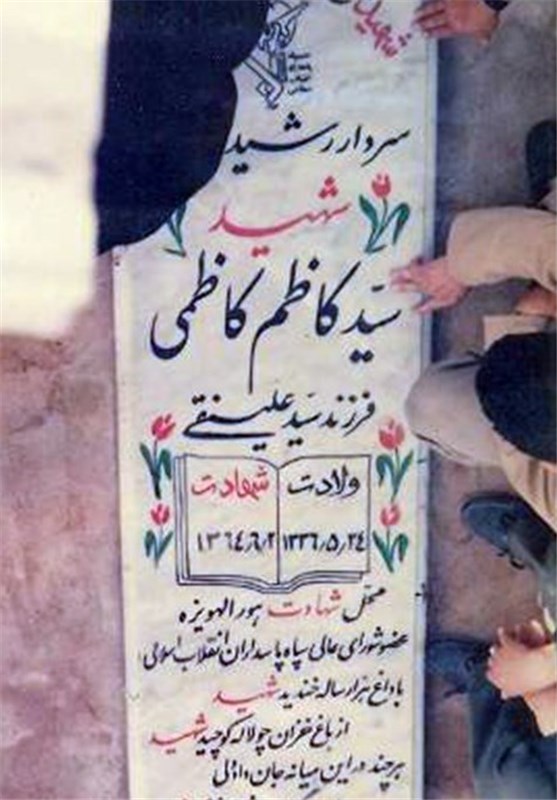 سردار رشید
شهید
سیّد کاظم کاظمی
فرزند سید علینقی
ولادت شهادت
۱۳۳۶٫۵٫۲۴ ۱۳۶۴٫۶٫۲
محل شهادت هورالهویزه
عضو شورای عالی سپاه پاسداران انقلاب اسلامی
با داغ هزار ساله خندید شهید
از باغ خزان چو لاله کوچید شهید
هر چند در این میانه جان داد ولی